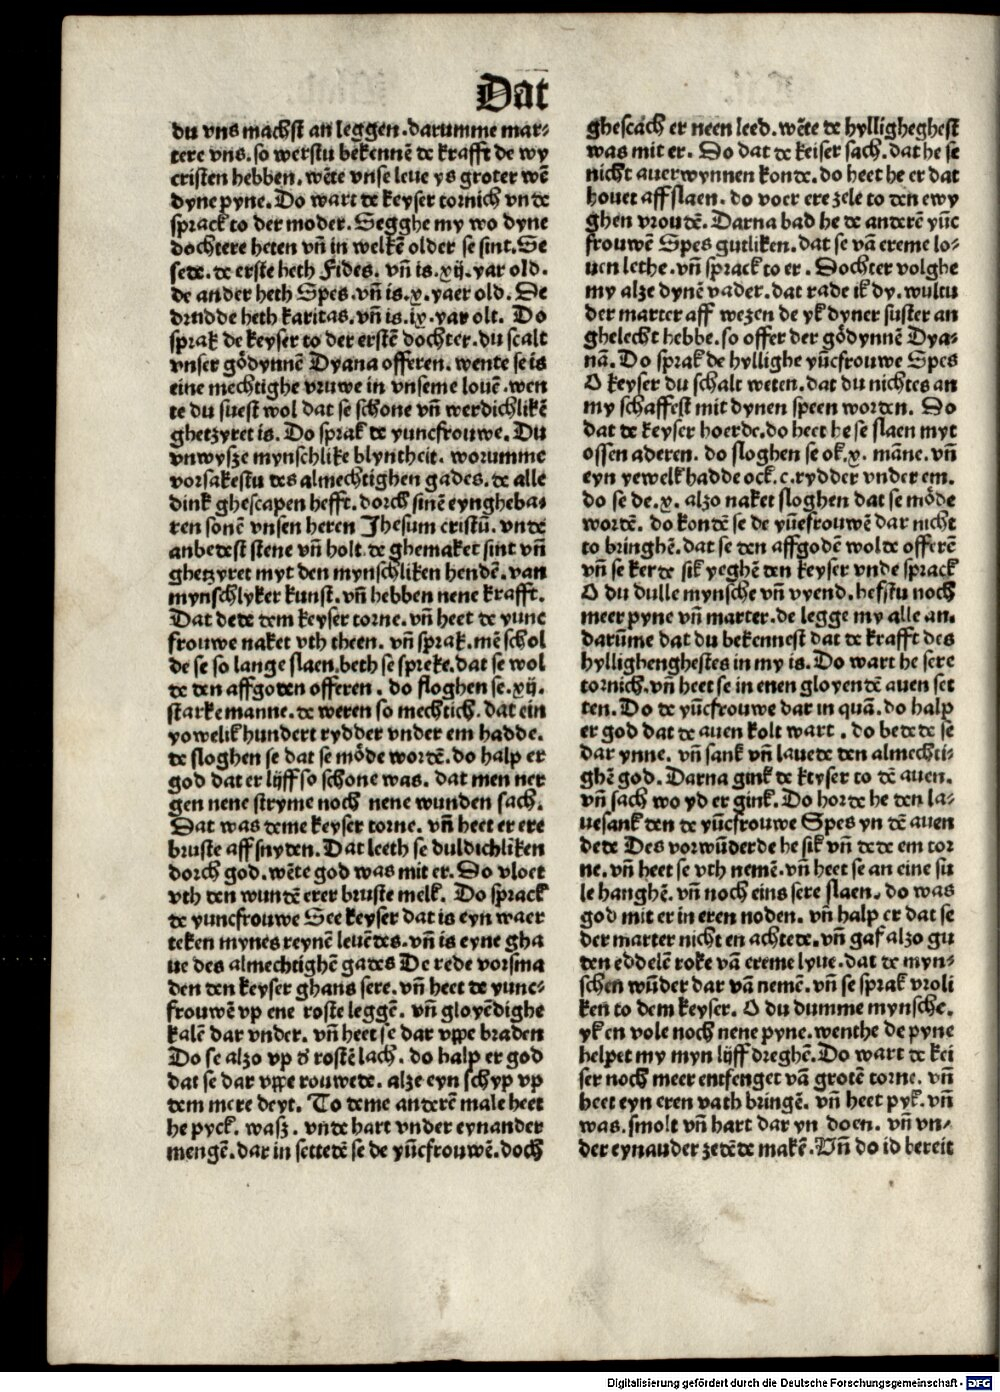 Dat
du vns machst an leggen. darumme mar⸗
tere vns. so werstu bekennē de krafft de wy
cristen hebben. wēte vnse leue ys groter wē
dyne pyne. Do wart de keyser tornich vnde
sprack to der moder. Segghe my wo dyne
dochtere heten vn̄ in welkē older se sint. Se
sede. de erste heth Fides. vn̄ is. xij. yar old.
de ander heth Spes. vn̄ is. x. yaer old. De
drudde heth karitas. vn̄ is. ix. yar olt. Do
sprak de keyser to der erstē dochter. du scalt
vnser gödynnē Dyana offeren. wente se is
eine mechtighe vruwe in vnseme louē. wen
te du suest wol dat se schone vn̄ werdichlikē
ghetzyret is. Do sprak de yuncfrouwe. Du
vnwysze mynschlike blyntheit. worumme
vorsakestu des almechtighen gades. de alle
dink ghescapen hefft. dorch sinē eyngheba⸗
ren sonē vnsen heren Jhesum cristū. vnde
anbedest stene vn̄ holt. de ghemaket sint vn̄
ghetzyret myt den mynschliken hendē. van
mynschlyker kunst. vn̄ hebben nene krafft.
Dat dede dem keyser torne. vn̄ heet de yunc
frouwe naket vth theen. vn̄ sprak. mē schol
de se so lange slaen. beth se spreke. dat se wol
de den affgoden offeren. do sloghen se. xij.
starke manne. de weren so mechtich. dat ein
yowelik hundert rydder vnder em hadde.
de sloghen se dat se möde wordē. do halp er
god dat er lijff so schone was. dat men ner
gen nene stryme noch nene wunden sach.
Dat was deme keyser torne. vn̄ heet er ere
bruste aff snyden. Dat leeth se duldichliken
dorch god. wēte god was mit er. Do vloet
vth den wundē erer bruste melk. Do sprack
de yuncfrouwe See keyser dat is eyn waer
teken mynes reynē leuēdes. vn̄ is eyne gha
ue des almechtighē gades De rede vorsma
den den keyser ghans sere. vn̄ heet de yunc⸗
frouwen vp ene roste leggē. vn̄ gloyēdighe
kalē dar vnder. vn̄ heet se dar vppe braden
Do se alzo vp d' rostē lach. do halp er god
dat se dar vppe rouwede. alze eyn schyp vp
dem mere deyt. To deme anderē male heet
he pyck. wasz. vnde hart vnder eynander
mengē. dar in settedē se de yūcfrouwē. doch
ghescach er neen leed. wēte de hyllighegheſt
was mit er. Do dat de keiser sach. dat he se
nicht auerwynnen konde. do heet he er dat
houet affslaen. do voer ere zele to den ewy
ghen vroudē. Darna bad he de anderē yūc
frouwē Spes gutliken. dat se vā ereme lo⸗
uen lethe. vn̄ sprack to er. Dochter volghe
my alze dynē vader. dat rade ik dy. wultu
der marter aff wezen de yk dyner suster an
ghelecht hebbe. so offer der gödynnē Dya⸗
nā. Do sprak de hyllighe yūcfrouwe Spes
O keyser du schalt weten. dat du nichtes an
my schaffest mit dynen speen worden. Do
dat de keyser hoerde. do heet he se slaen myt
ossen aderen. do sloghen se ok. x. māne. vn̄
eyn yewelk hadde ock. c. rydder vnder em.
do se de. x. alzo naket sloghen dat se möde
wordē. do kondē se de yūcfrouwē dar nicht
to bringhē. dat se den affgodē wolde offerē
vn̄ se kerde sik yeghē den keyser vnde sprack
O du dulle mynsche vn̄ vyend. hefstu noch
meer pyne vn̄ marter. de legge my alle an.
darūme dat du bekennest dat de krafft des
hyllighenghestes in my is. Do wart he sere
tornich. vn̄ heet se in enen gloyendē auen set
ten. Do de yūcfrouwe dar in quā. do halp
er god dat de auen kolt wart. do bedede se
dar ynne. vn̄ sank vn̄ lauede den almechti⸗
ghē god. Darna gink de keyser to dē auen.
vn̄ sach wo yd er gink. Do horde he den la⸗
uesank den de yūcfrouwe Spes yn dē auen
dede Des vorwūderde he sik vn̄ dede em tor
ne. vn̄ heet se vth nemē. vn̄ heet se an eine su
le hanghē. vn̄ noch eins sere slaen. do was
god mit er in eren noden. vn̄ halp er dat se
der marter nicht en achtede. vn̄ gaf alzo gu
den eddelē roke vā ereme lyue. dat de myn⸗
schen wūder dar vā nemē. vn̄ se sprak vroli
ken to dem keyser. O du dumme mynsche.
yk en vole noch nene pyne. wenthe de pyne
helpet my myn lijff dreghē. Do wart de kei
ser noch meer entfenget vā grotē torne. vn̄
heet eyn eren vath bringē. vn̄ heet pyk. vn̄
was. smolt vn̄ hart dar yn doen. vn̄ vn⸗
der eynander zededē makē. Vn̄ do id bereit
Digitalisierung gefördert durch die Deutsche Forschungsgemeinschaft - DFG